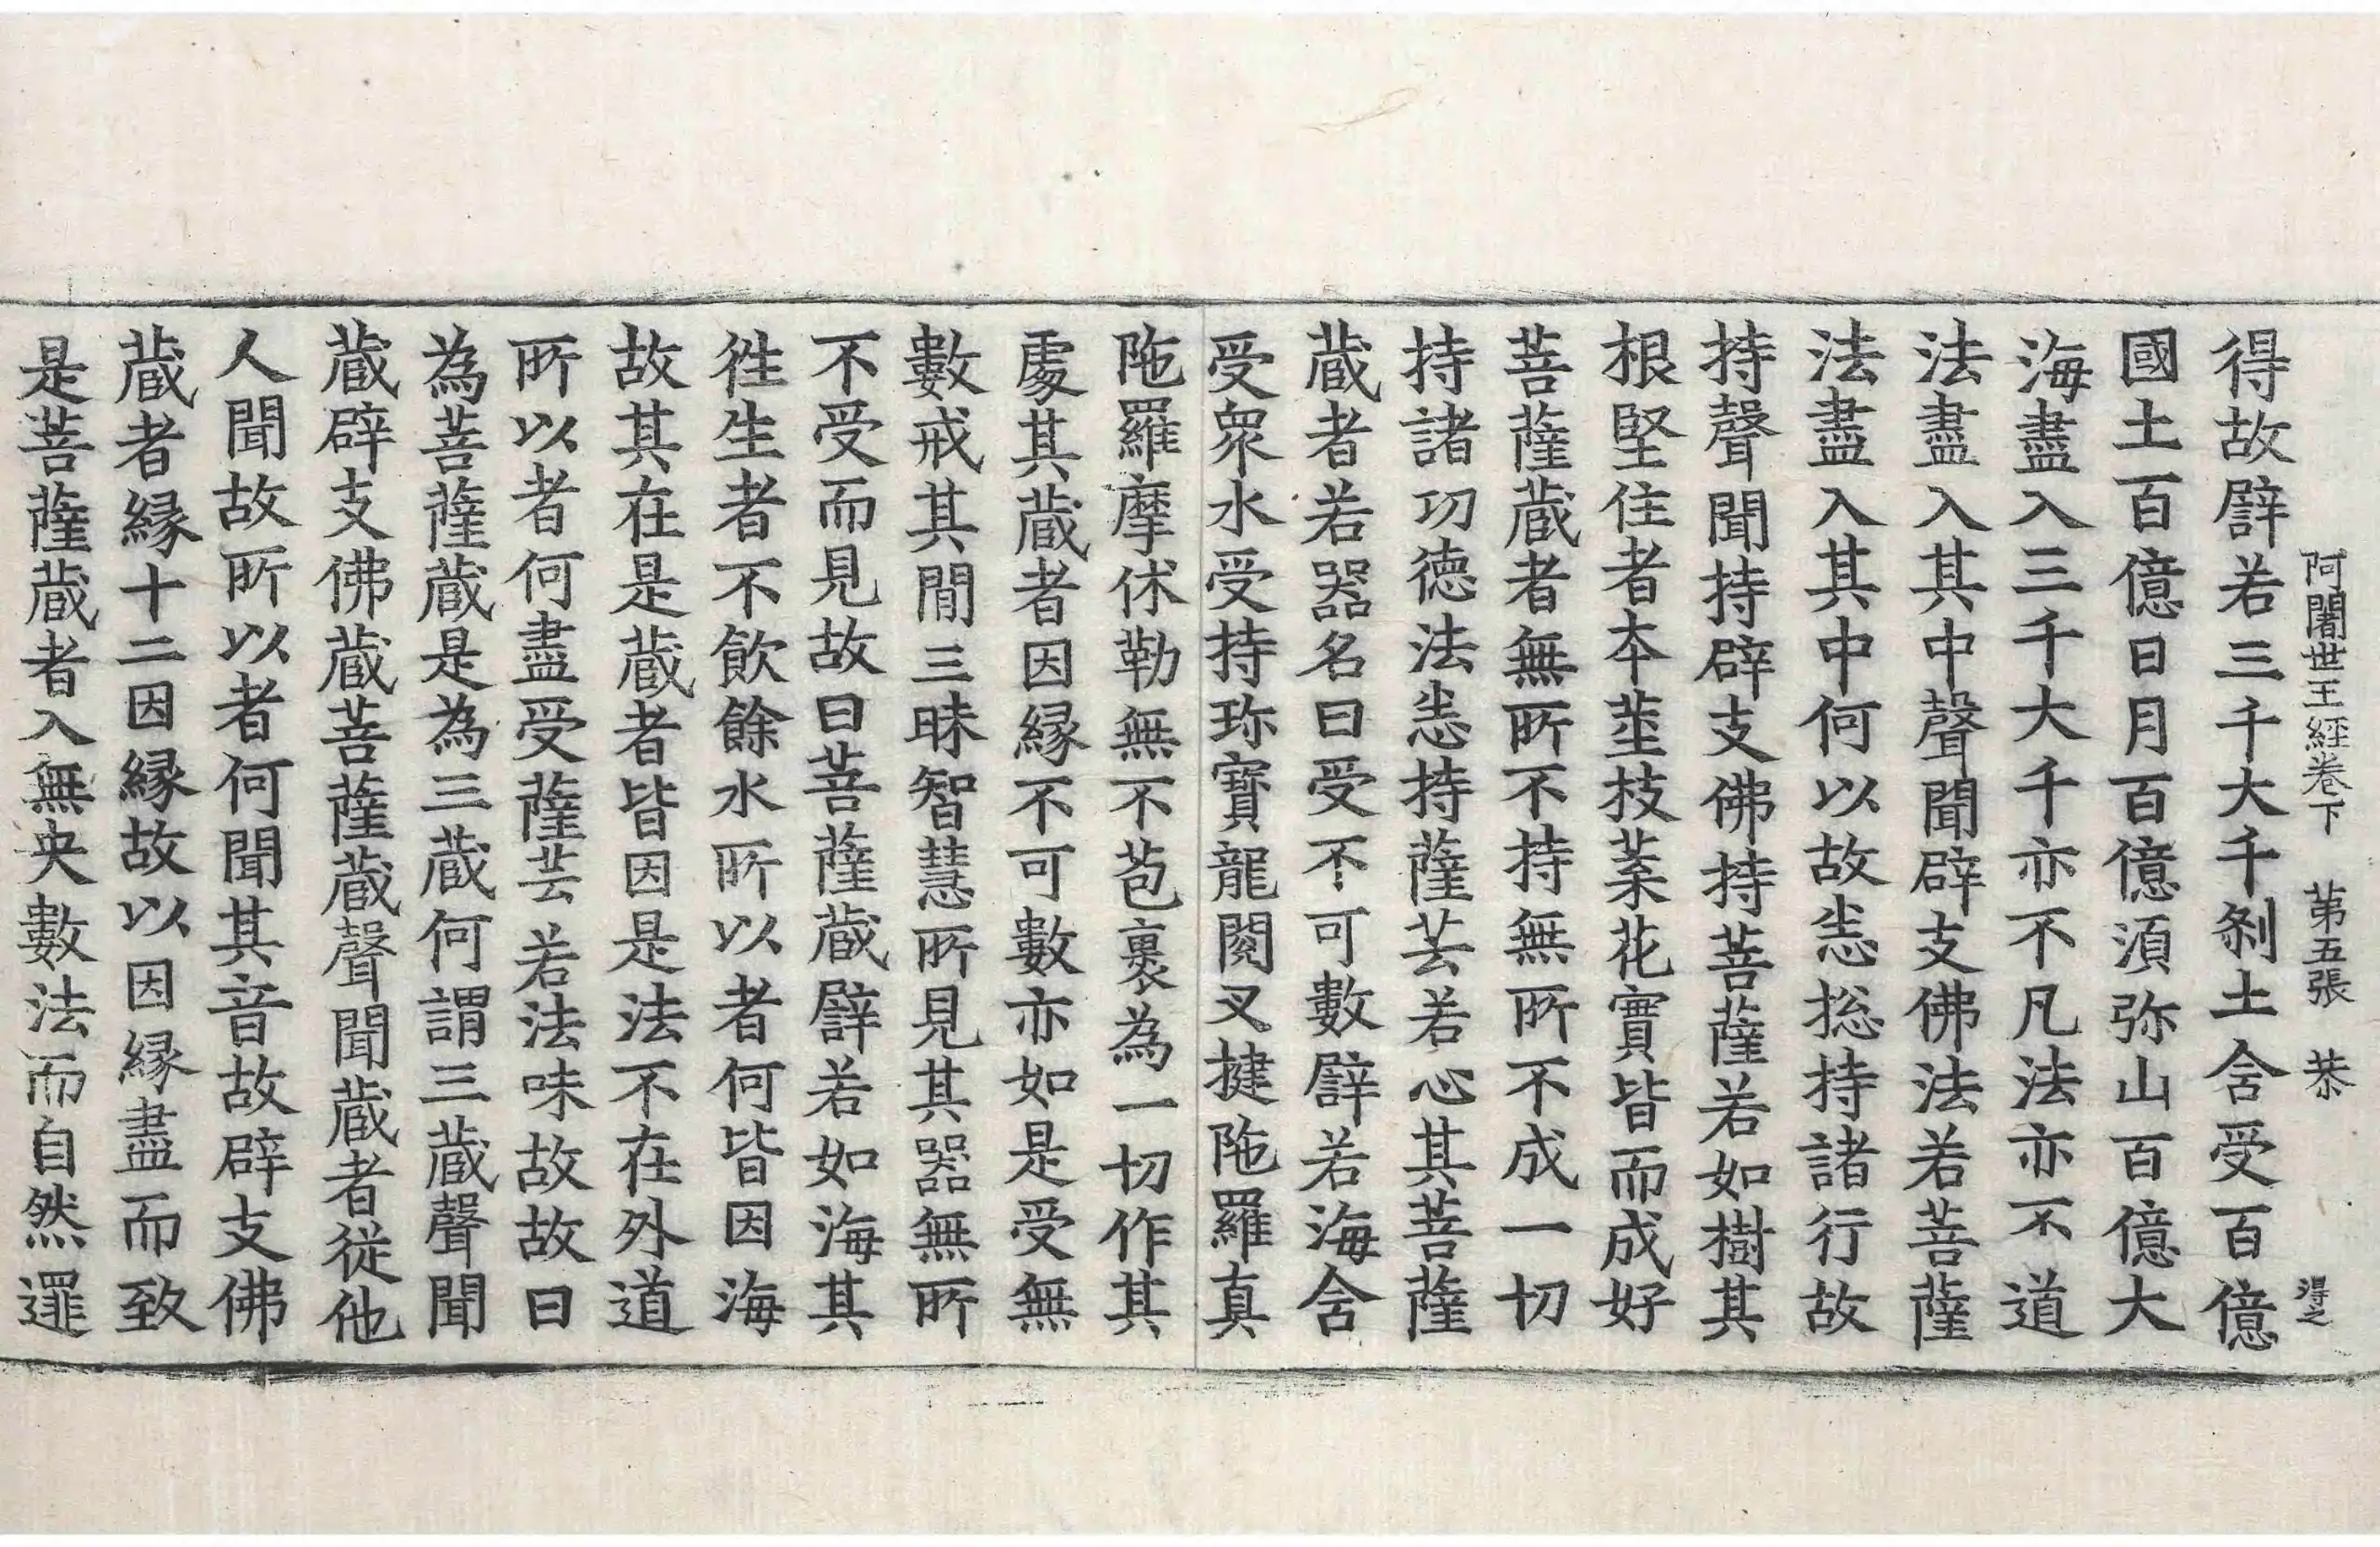 阿闍世王經卷下 第五張 恭 得之
得故譬若三千大千刹土含受百億
國土百億日月百億須弥山百億大
海盡入三千大千亦不凡法亦不道
法盡入其中聲聞辟支佛法若菩薩
法盡入其中何以故悉㧾持諸行故
持聲聞持辟支佛持菩薩若如樹其
根堅住者夲莖枝葉花實皆而成好
菩薩蔵者無所不持無所不成一切
持諸功德法悉持薩芸若心其菩薩
蔵者若器名曰受不可數譬若海含
受衆水受持珎寶龍閱叉揵陁羅真
陁羅摩休勒無不苞裹為一切作其
處其蔵者因縁不可數亦如是受無
數戒其閒三昧智慧所見其器無所
不受而見故曰菩薩蔵譬若如海其
徃生者不飲餘水所以者何皆因海
故其在是蔵者皆因是法不在外道
所以者何盡受薩芸若法味故故曰
為菩薩蔵是為三蔵何謂三蔵聲聞
蔵辟支佛蔵菩薩蔵聲聞蔵者從他
人聞故所以者何聞其音故辟支佛
蔵者縁十二因縁故以因縁盡而致
是菩薩蔵者入無央數法而自然邏